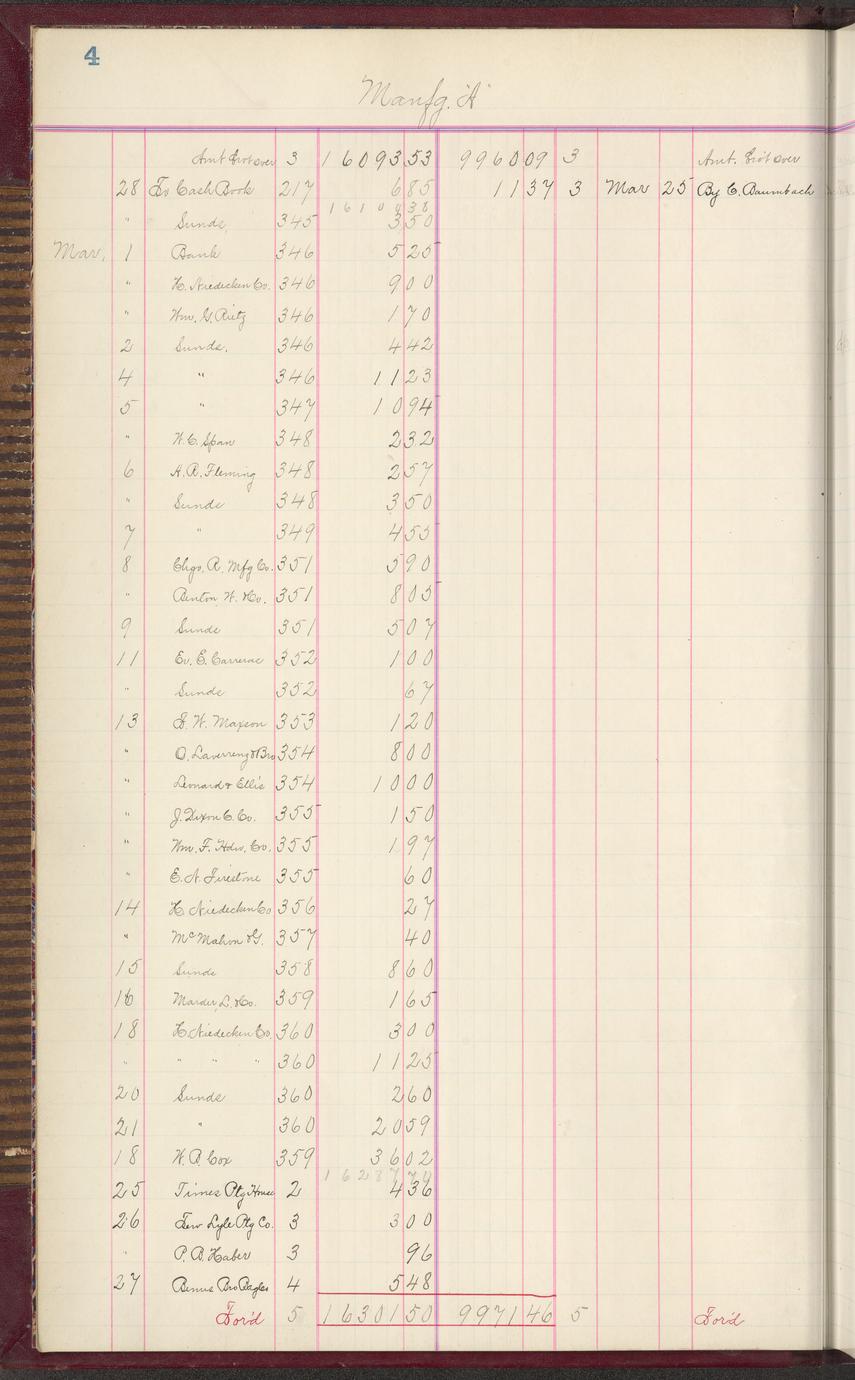 4
Manfg. "A"
Amt Brot over 3 16093 53 9960 09 3 Amt. Brot over
28 To Cash Book 217 6 85 11 37 3 Mar 25 By C. Baumbach
16104 38
" Sunds, 345 3 50
Mar, 1 Bank 346 5 25
" H. Niedecken Co. 346 9 00
" Wm. G. Rietz 346 1 70
2 Sunds. 346 4 42
4 " 346 11 23
5 " 347 10 94
" W. C. Span 348 2 32
6 A. R. Fleming 348 2 57
" Sunds 348 3 50
7 " 349 4 55
8 Chgo. R. Mfg Co. 351 5 90
" Benton W. & Co. 351 8 05
9 Sunds 351 5 07
11 Ev. E. Carrerac 352 1 00
" Sunds 352 67
13 W. Maxson 353 1 20
" O. & Bro 354 8 00
" Leonard & Ellis 354 10 00
" J. Dixon C. Co. 355 1 50
" Wm. F. Hdw. Co. 355 1 97
" E. N. Firestone 355 60
14 H. Niedecken Co 356 27
" McMahon & G. 357 40
15 Sunds 358 8 60
16 Marder, L. & Co. 359 1 65
18 H. Niedecken Co. 360 3 00
" " " " 360 11 25
20 Sunds 360 2 60
21 " 360 20 59
18 W. B. Cox 359 36 02
16287 70
25 Times Ptg House 2 4 36
26 Lyle Ptg Co. 3 3 00
" P. B. Haber 3 96
27 Bemis Bro Bag 4 5 48
For'd 5 16301 50 9971 46 5 For'd